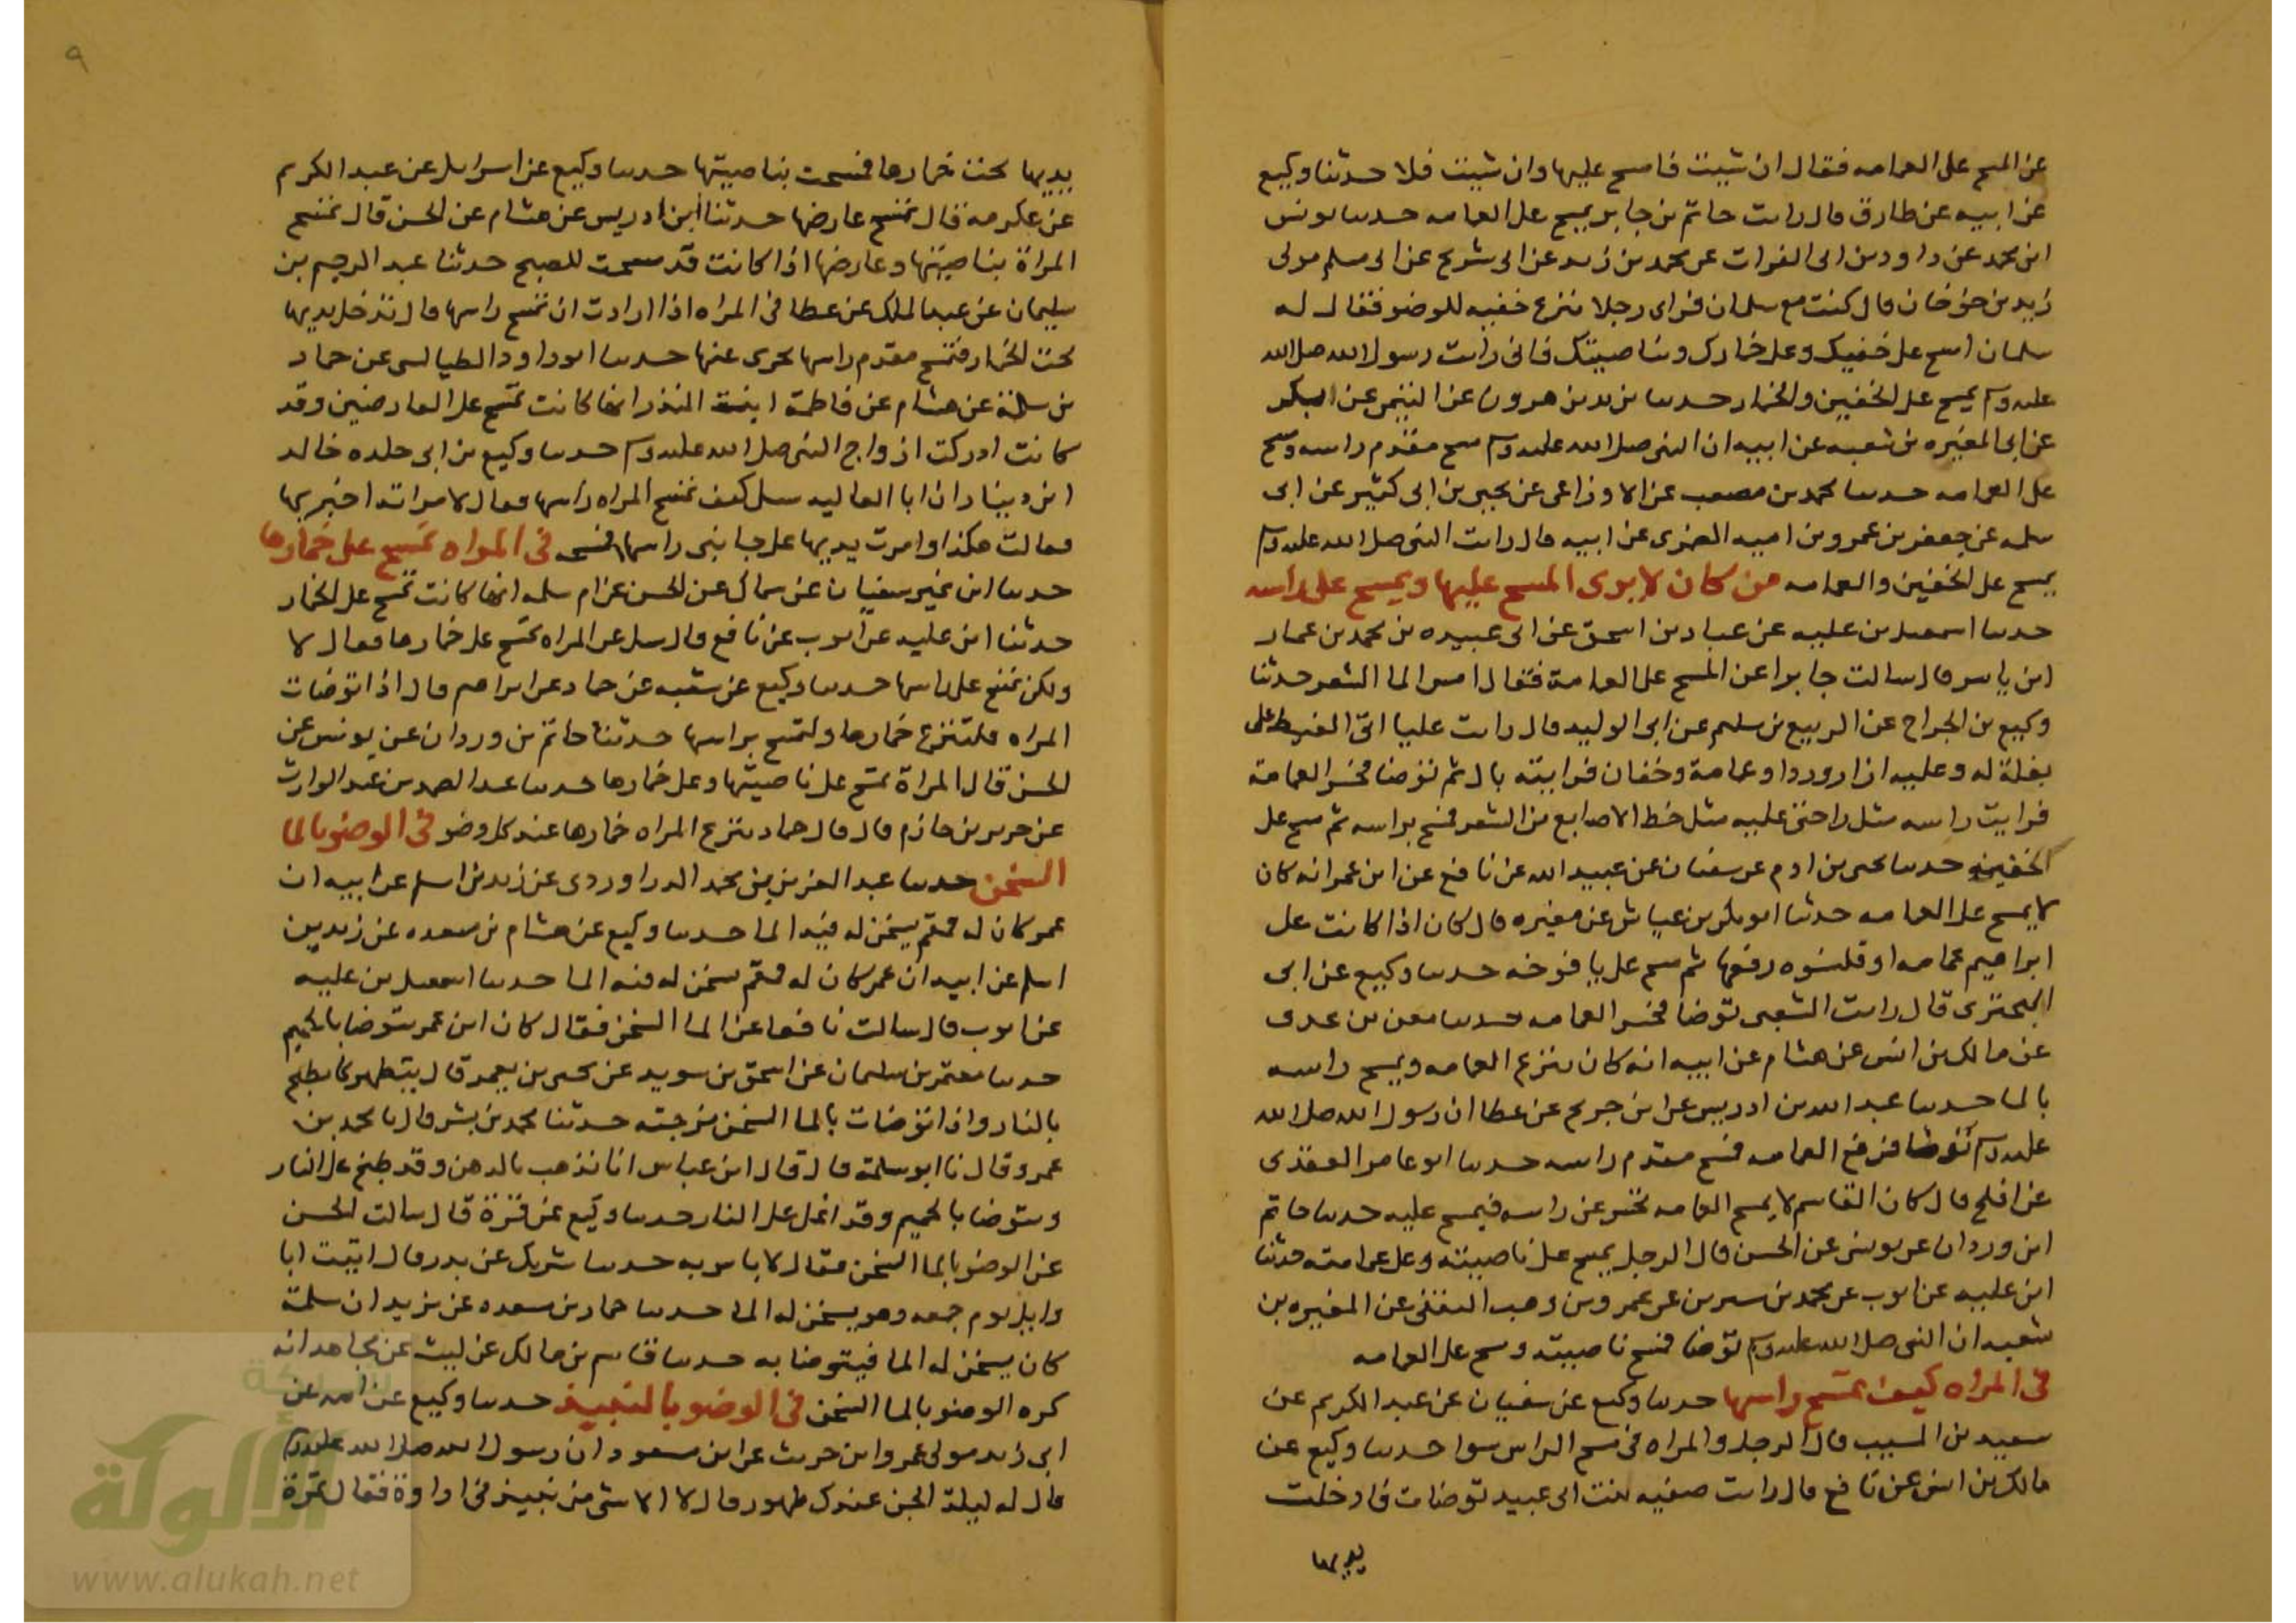 عن المسح على العمامه فقال ان شيت فامسح عليها وان شيت فلا حدثنا وكيع
عن ابيه عن طارق قال رايت حاتم بن جابر يمسح على العمامه حدثنا يونس
ابن محمد عن داود بن ابى الفرات عن محمد بن زيد عن ابى شريح عن ابى مسلم مولى
زيد بن صوخان قال كنت مع سلمان فراى رجلا ينزع خفيه للوضو فقال له
سلمان امسح على خفيك وعلى خمارك وبناصيتك فانى رايت رسول الله صلى الله
عليه وسلم يمسح على الخفين والخمار حدثنا يزيد بن هرون عن التيمى عن بكر
عن ابن المغيره بن شعبه عن ابيه ان النبى صلى الله عليه وسلم مسح مقدم راسه ومسح
على العمامه حدثنا محمد بن مصعب عن الاوزاعى عن يحيى بن ابى كثير عن ابى
سلمه عن جعفر بن عمرو بن اميه الضمرى عن ابيه قال رايت النبى صلى الله عليه وسلم
يمسح على الخفين والعمامه من كان لا يرى المسح عليها ويمسح على راسه
حدثنا اسمعيل بن عليه عن عباد بن اسحق عن ابى عبيده بن محمد بن عمار
ابن ياسر قال سالت جابرا عن المسح على العمامة فقال امس الما الشعر حدثنا
وكيع بن الجراح عن الربيع بن سليم عن ابى الوليد قال رايت عليا اتى الغيط على
بغلة له وعليه ازار وردا وعمامة وخفان فرايته بال ثم توضا فحسر العمامة
فرايت راسه مثل راحتى عليه مثل خط الاصابع من الشعر فمسح براسه ثم مسح على
الخفين حدثنا يحيى بن ادم عن سفيان عن عبيد الله عن نافع عن ابن عمر انه كان
لا يمسح على العمامه حدثنا ابو بكر بن عياش عن مغيره قال كان اذا كانت على
ابراهيم عمامه او قلنسوه رفعها ثم مسح على يافوخه حدثنا وكيع عن ابى
البحترى قال رايت الشعبى توضا فحسر العمامه حدثنا معن بن عدى
عن مالك بن انس عن هشام عن ابيه انه كان ينزع العمامه ويمسح راسه
بالما حدثنا عبد الله بن ادريس عن ابن جريج عن عطا ان رسول الله صلى الله
عليه وسلم توضا فرفع العمامه فمسح مقدم راسه حدثنا ابو عامر العقدى
عن افلح قال كان القاسم لا يمسح العمامه يحسر عن راسه فيمسح عليه حدثنا حاتم
ابن وردان عن يونس عن الحسن قال الرجل يمسح على ناصيته وعلى عمامته حدثنا
ابن عليه عن ايوب عن محمد بن سيرين عن عمرو بن وهب الثقفى عن المغيره بن
شعبه ان النبى صلى الله عليه وسلم توضا فمسح ناصيته ومسح على العمامه
فى المراه كيف تمسح راسها حدثنا وكيع عن سفيان عن عبد الكريم عن
سعيد بن المسيب قال الرجل والمراه فى مسح الراس سوا حدثنا وكيع عن
مالك بن انس عن نافع قال رايت صفيه بنت ابى عبيد توضات فادخلت
يديها
٩
يديها تحت خمارها فمسحت بناصيتها حدثنا وكيع عن اسرايل عن عبد الكريم
عن عكرمه قال تمسح عارضها حدثنا ابن ادريس عن هشام عن الحسن قال تمسح
المراة بناصيتها وعارضها اذا كانت قد مسحت للصبح حدثنا عبد الرحيم بن
سليمان عن عبد الملك عن عطا فى المراه اذا ارادت ان تمسح راسها قال تدخل يديها
تحت الخمار فتمسح مقدم راسها يجزى عنها حدثنا ابو داود الطيالسى عن حماد
بن سلمة عن هشام عن فاطمة ابنت المنذر انها كانت تمسح على العارضين وقد
كانت ادركت ازواج النبى صلى الله عليه وسلم حدثنا وكيع بن ابى خلده خالد
ابن دينار ان ابا العاليه سيل كيف تمسح المراه راسها فقال لامراته اخبريها
فقالت هكذا وامرت يديها على جانبى راسها فمسحه فى المراه تمسح على خمارها
حدثنا ابن نمير سفيان عن سماك عن الحسن عن ام سلمه انها كانت تمسح على الخمار
حدثنا ابن عليه عن ايوب عن نافع قال سيل عن المراه تمسح على خمارها فقال لا
ولكن تمسح على راسها حدثنا وكيع عن شعبه عن حماد عن ابراهيم قال اذا توضات
المراه فلتنزع خمارها ولتمسح براسها حدثنا حاتم بن وردان عن يونس عن
الحسن قال المراة تمسح على ناصيتها وعلى خمارها حدثنا عبد الصمد بن عبد الوارث
عن جرير بن حازم قال قال حماد تنزع المراه خمارها عند كل وضو فى الوضو بالما
السخن حدثنا عبد العزيز بن محمد الدراوردى عن زيد بن اسلم عن ابيه ان
عمر كان له قمقم يسخن له فيه الما حدثنا وكيع عن هشام بن سعده عن زيد بن
اسلم عن ابيه ان عمر كان له قمقم يسخن له فيه الما حدثنا اسمعيل بن عليه
عن ايوب قال سالت نافعا عن الما السخن فقال كان ابن عمر يتوضا بالحميم
حدثنا معتمر بن سليمان عن اسحق بن سويد عن يحيى بن يعمر قال يتطهر بما يطبخ
بالنار واذا توضات بالما السخن مزجته حدثنا محمد بن بشر قال نا محمد بن
عمرو قال نا ابو سلمة قال قال ابن عباس انا ندهب بالدهن وقد طبخ على النار
ونتوضا بالحميم وقد اغلى على النار حدثنا وكيع عن قرة قال سالت الحسن
عن الوضو بالما السخن فقال لا باس به حدثنا شريك عن بدر قال اتيت ابا
وايل يوم جمعه وهو يسخن له الما حدثنا حماد بن مسعده عن يزيد ان سلمة
كان يسخن له الما فيتوضا به حدثنا قاسم بن مالك عن ليث عن مجاهد انه
كره الوضو بالما السخن فى الوضو بالنبيذ حدثنا وكيع عن ابيه عن
ابى زيد مولى عمرو ابن حريث عن ابن مسعود ان رسول الله صلى الله عليه وسلم
قال له ليلة الجن عندك طهور قال لا الا شى من نبيذ فى اداوة فقال تمرة
شبكة
الألوكة
www.alukah.net